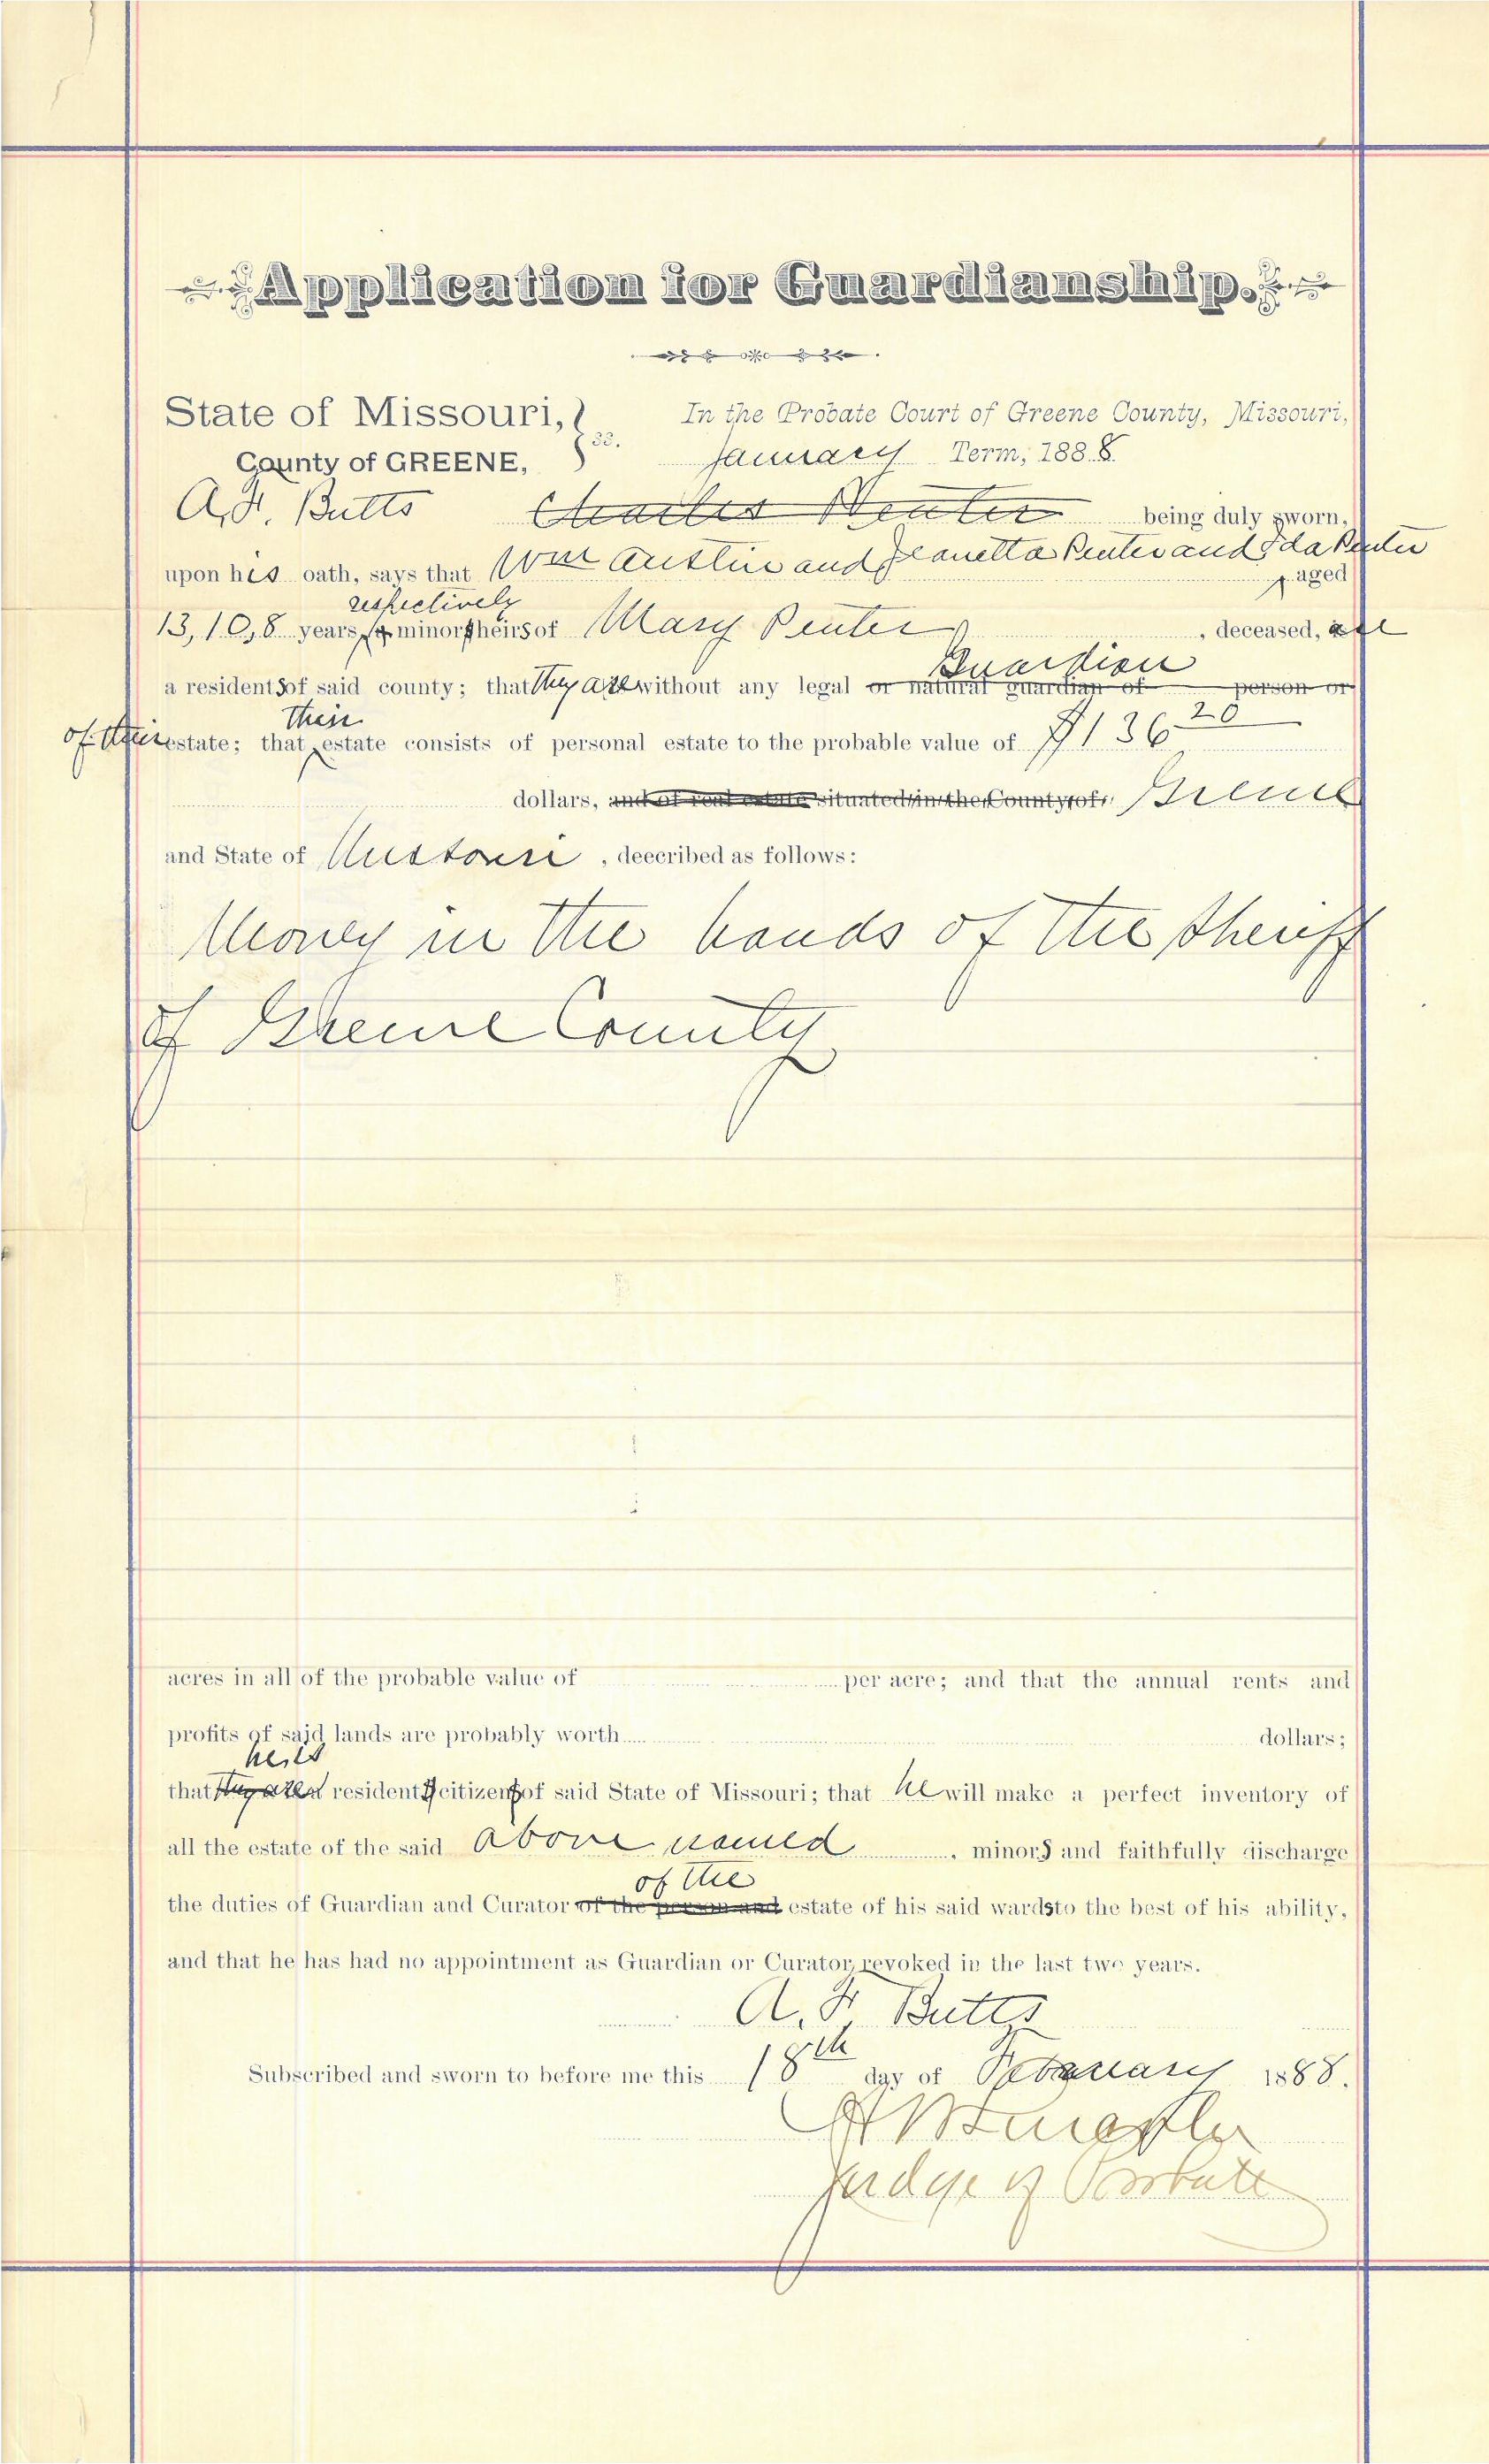 Application for Guardianship.
State of Missouri, In the Probate Court of Greene County, Missouri,
County of GREENE, ss. January Term, 1888.
A. F. Butts Charles Penter being duly sworn,
upon his oath, says that Wm Austin and Jeanetta Penter and Ida Penter aged
respectively
13, 10, 8 years, a minor heirs of Mary Penter, deceased, are
Guardian
a residents of said county; that they are without any legal or natural guardian of person or
their
of their estate; that estate consists of personal estate to the probable value of $136 20
dollars, and of real estate situated in the County of Greene
and State of Missouri, deecribed as follows:
Money in the hands of the Sheriff
of Greene County
acres in all of the probable value of per acre; and that the annual rents and
profits of said lands are probably worth dollars;
he is
that they are a residents citizens of said State of Missouri; that he will make a perfect inventory of
all the estate of the said above named, minors and faithfully discharge
of the
the duties of Guardian and Curator of the person and estate of his said wards to the best of his ability,
and that he has had no appointment as Guardian or Curator, revoked in the last two years.
A. F. Butts
Subscribed and sworn to before me this 18th day of February 1888.
Judge of Probate